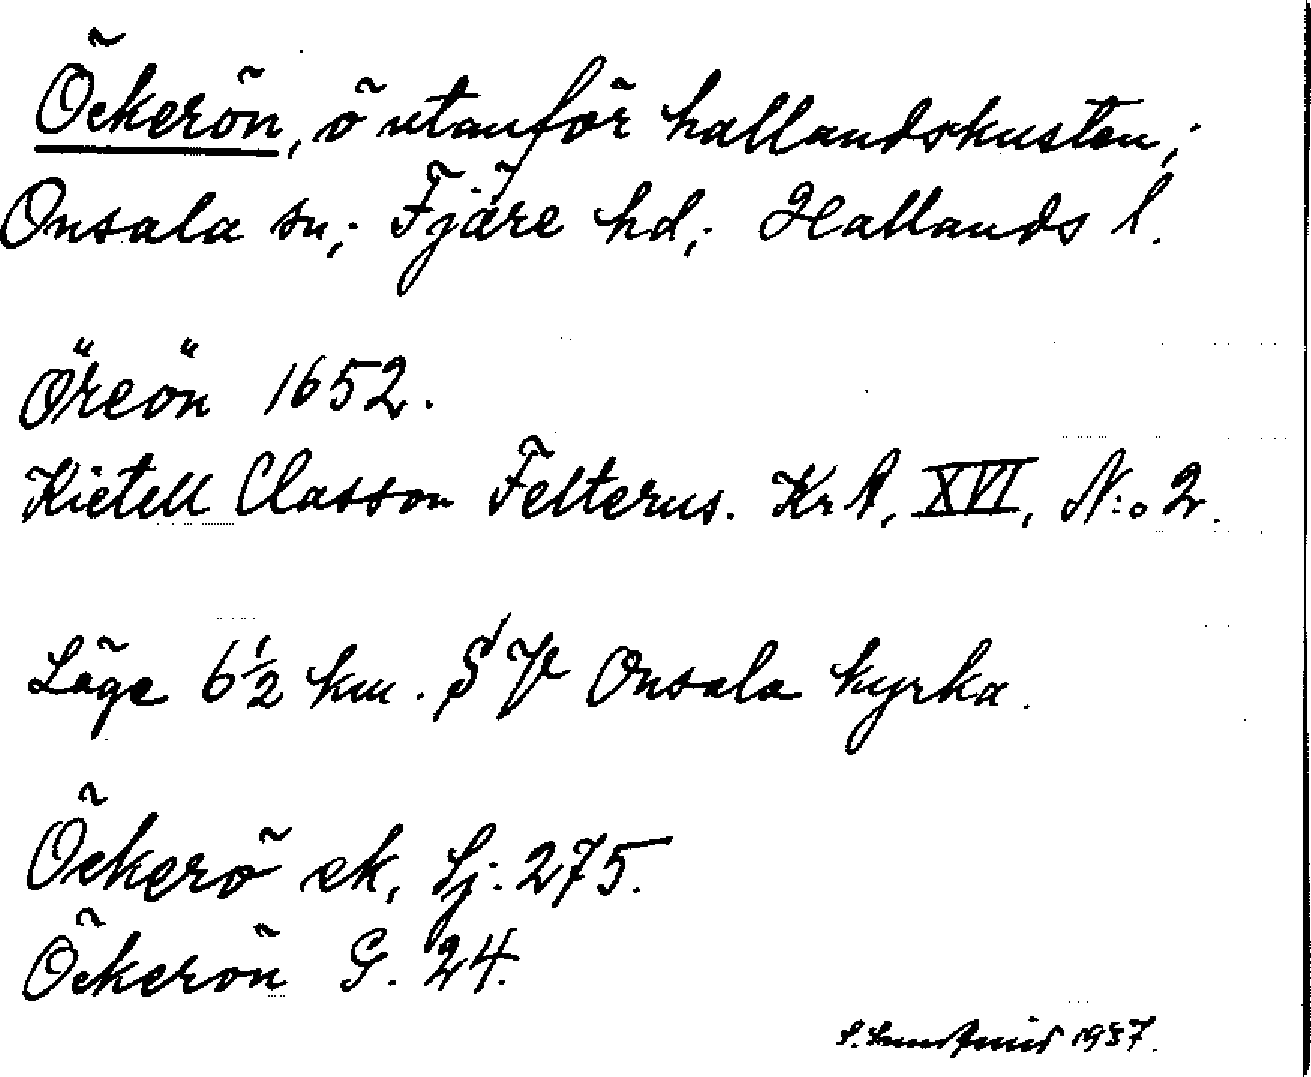 Öckerön, ö utanför hallandskusten;
Onsala sn; Fjäre hd; Hallands l.
Öreön 1652.
Kietell Classon Felterus. Kr A, XVI, N:o 2.
Läge 6½ km. S V Onsala kyrka.
Öckerö ek, Sj: 275.
Öckerön G. 24.
S. 1937.